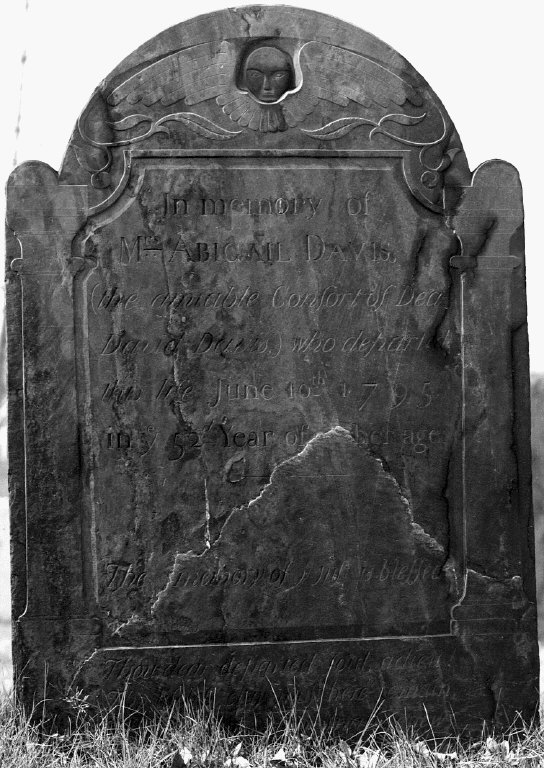 In memory of
Mrs ABIGAIL DAVIS,
(the amiable Consort of Dea.
David Davis,) who depart
this life June 10th 1795
in ye 52d Year of her age.
The memory of ye Just is blessed
departed soul,